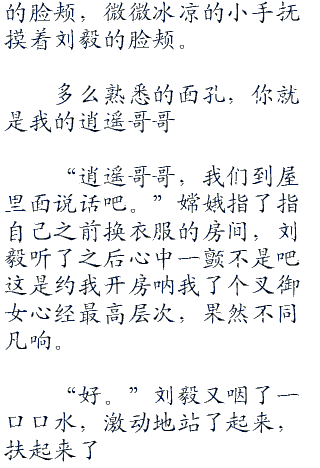 的脸颊，微微冰凉的小手抚
摸着刘毅的脸颊。
多么熟悉的面孔，你就
是我的逍遥哥哥
“逍遥哥哥，我们到屋
里面说话吧。”嫦娥指了指
自己之前换衣服的房间，刘
毅听了之后心中一颤不是吧
这是约我开房呐我了个叉御
女心经最高层次，果然不同
凡响。
“好。”刘毅又咽了一
口口水，激动地站了起来，
扶起来了